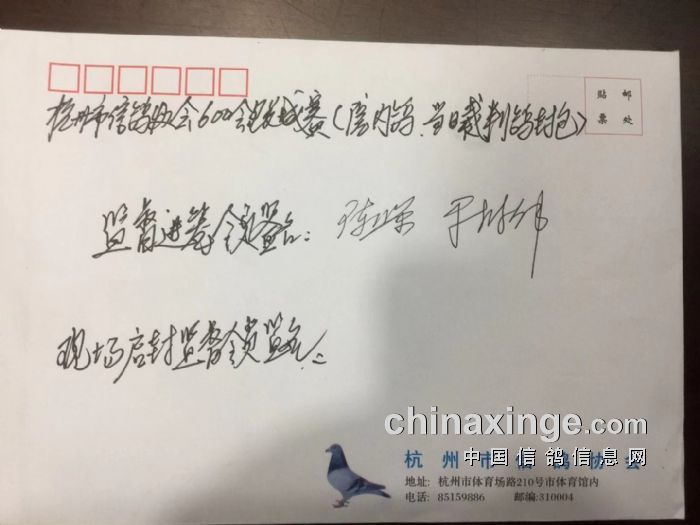 贴 邮
票 处
杭州市信鸽协会600公里 赛(库内鸽、当日裁判鸽封包)
监督进笼人员签名:
现场启封监督人员签名:
chinaxinge.com
中国信鸽信息网
杭州市信鸽协会
地址: 杭州市体育场路210号市体育馆内
电话: 85159886 邮编:310004